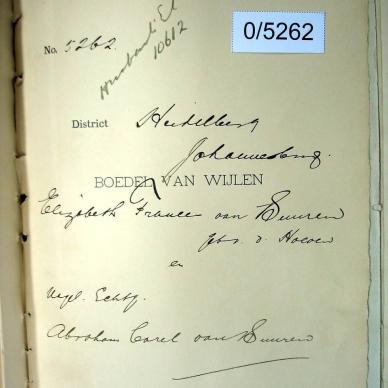 0/5262
No. 5262.
Husband's El
10612
District Heidelberg
Johannesburg.
BOEDEL VAN WIJLEN
Elizabeth France van Buuren
geb. v. Hoeven
en
Nagel. Echtg.
Abraham Carel van Buuren